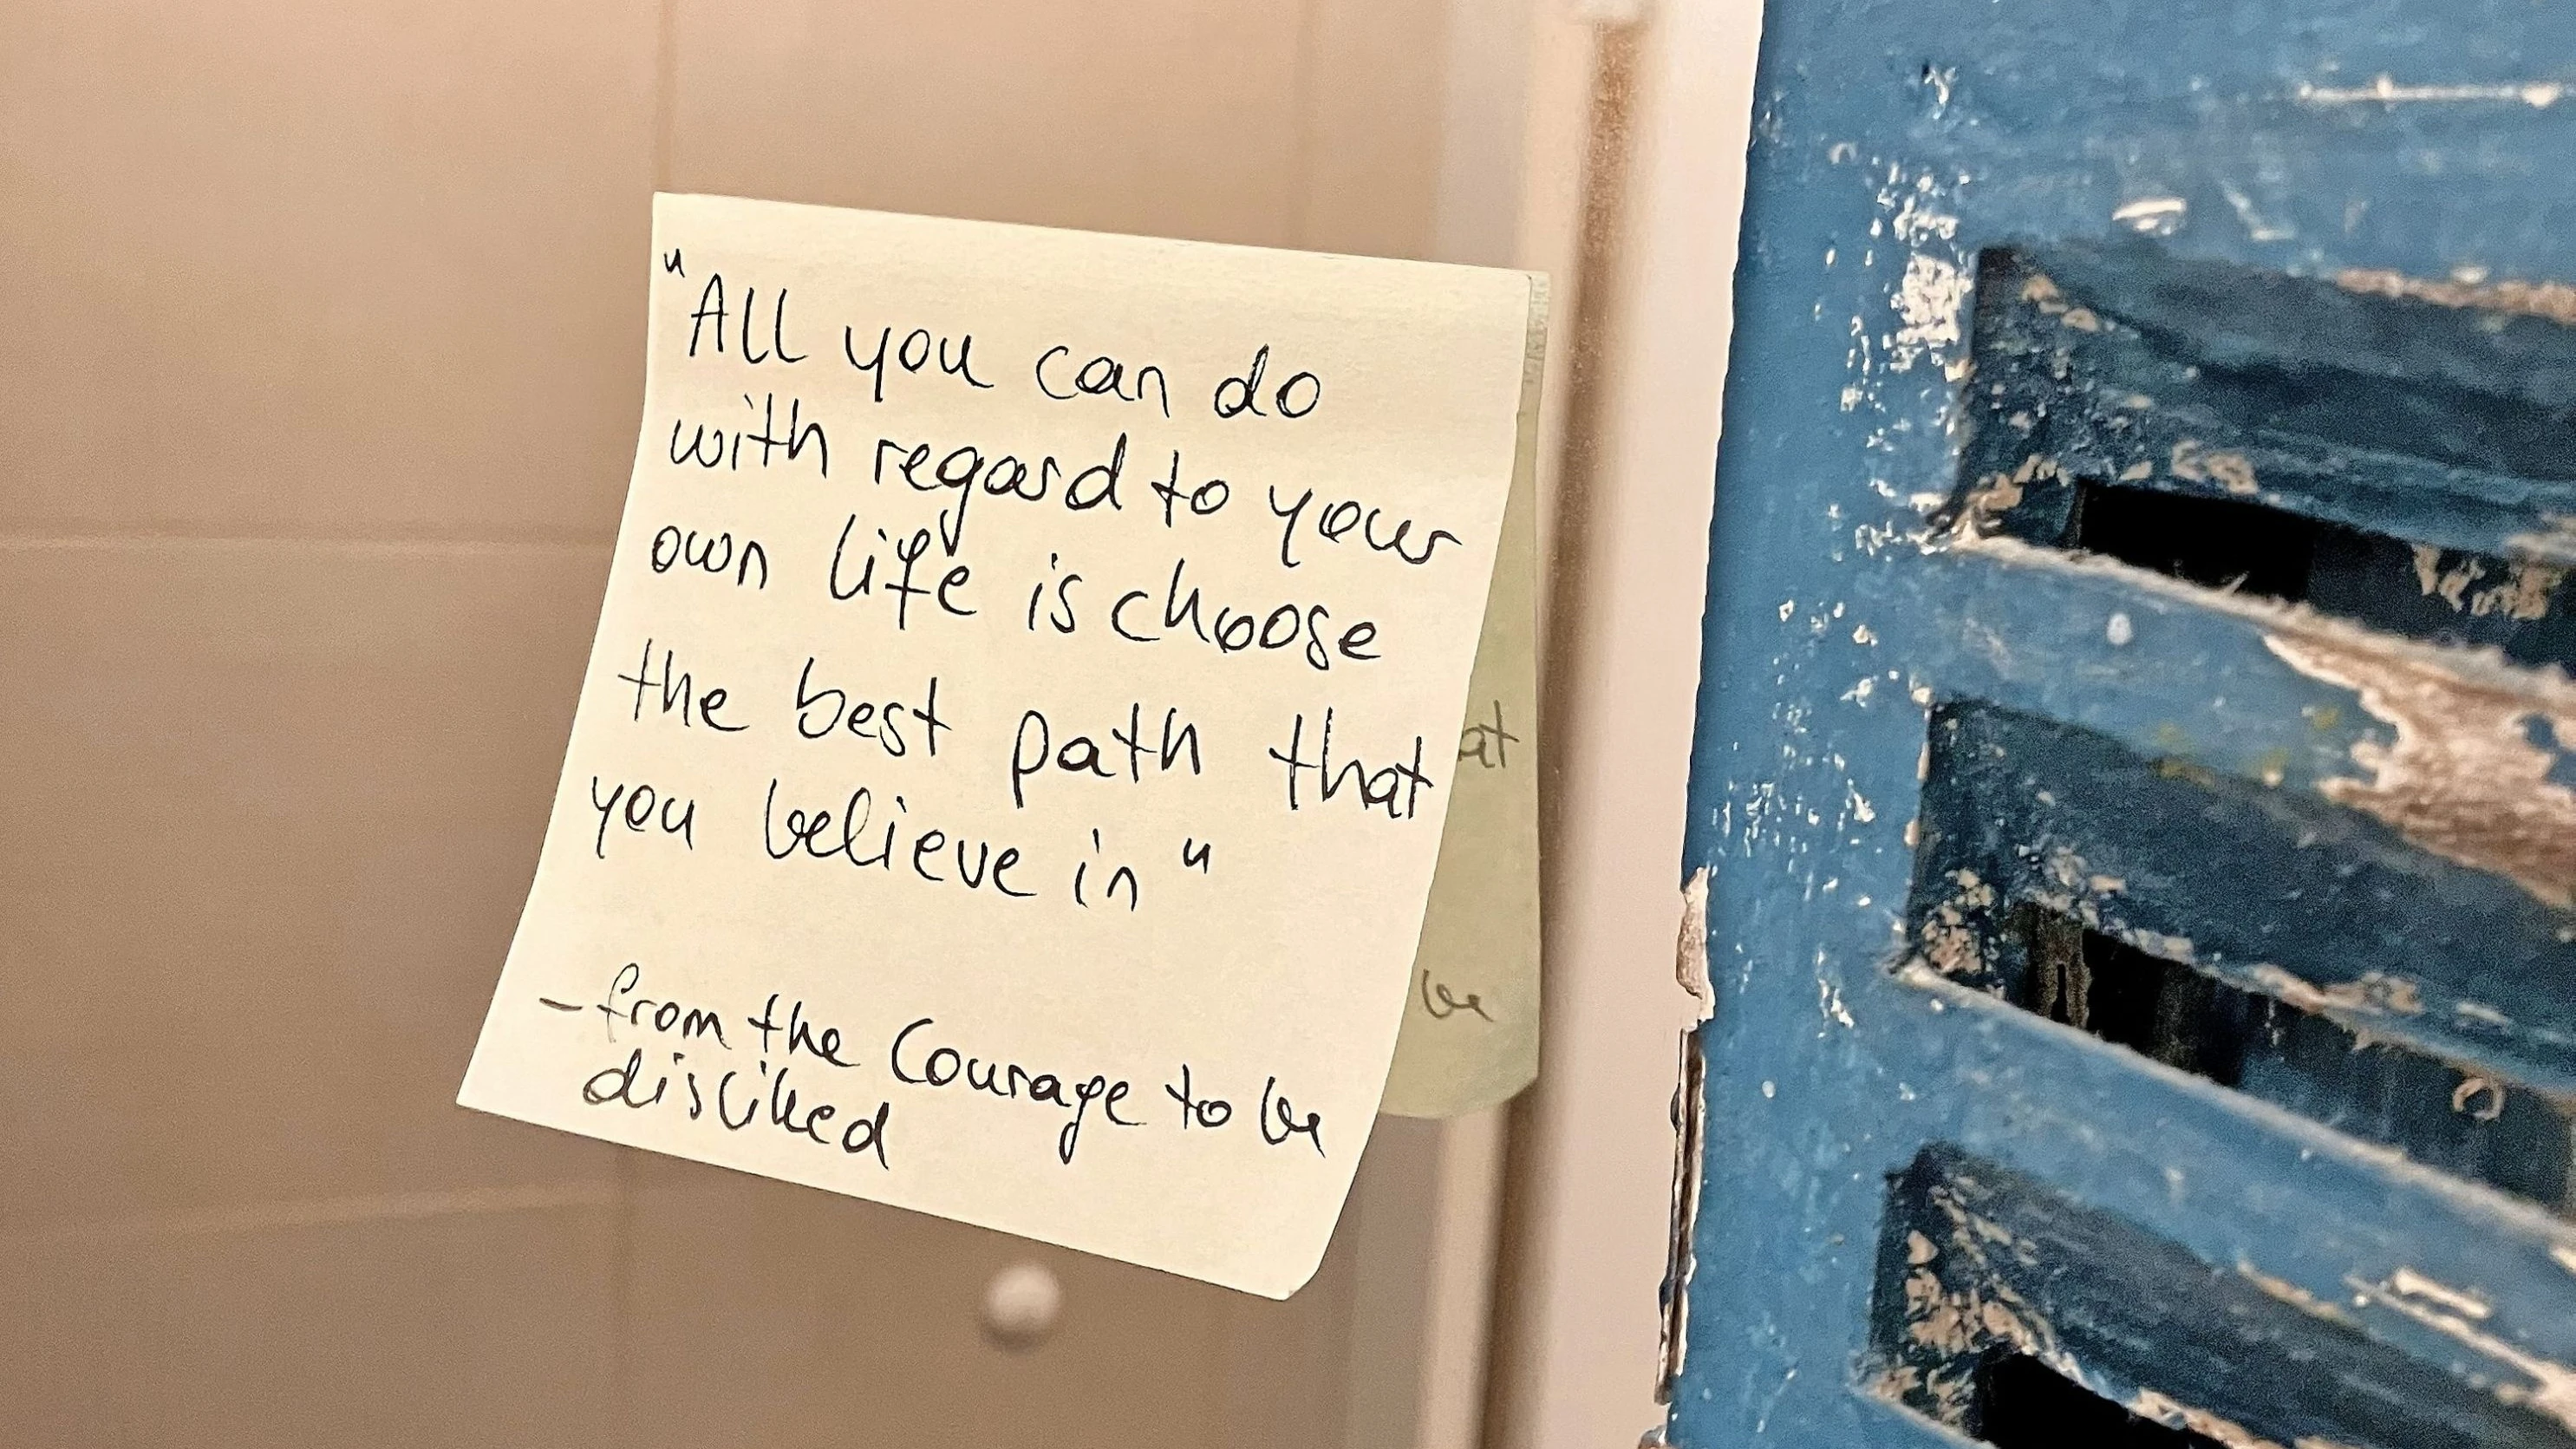 "All you can do
with regard to your
own life is choose
the best path that
you believe in"
- from the Courage to be
disliked
at
be